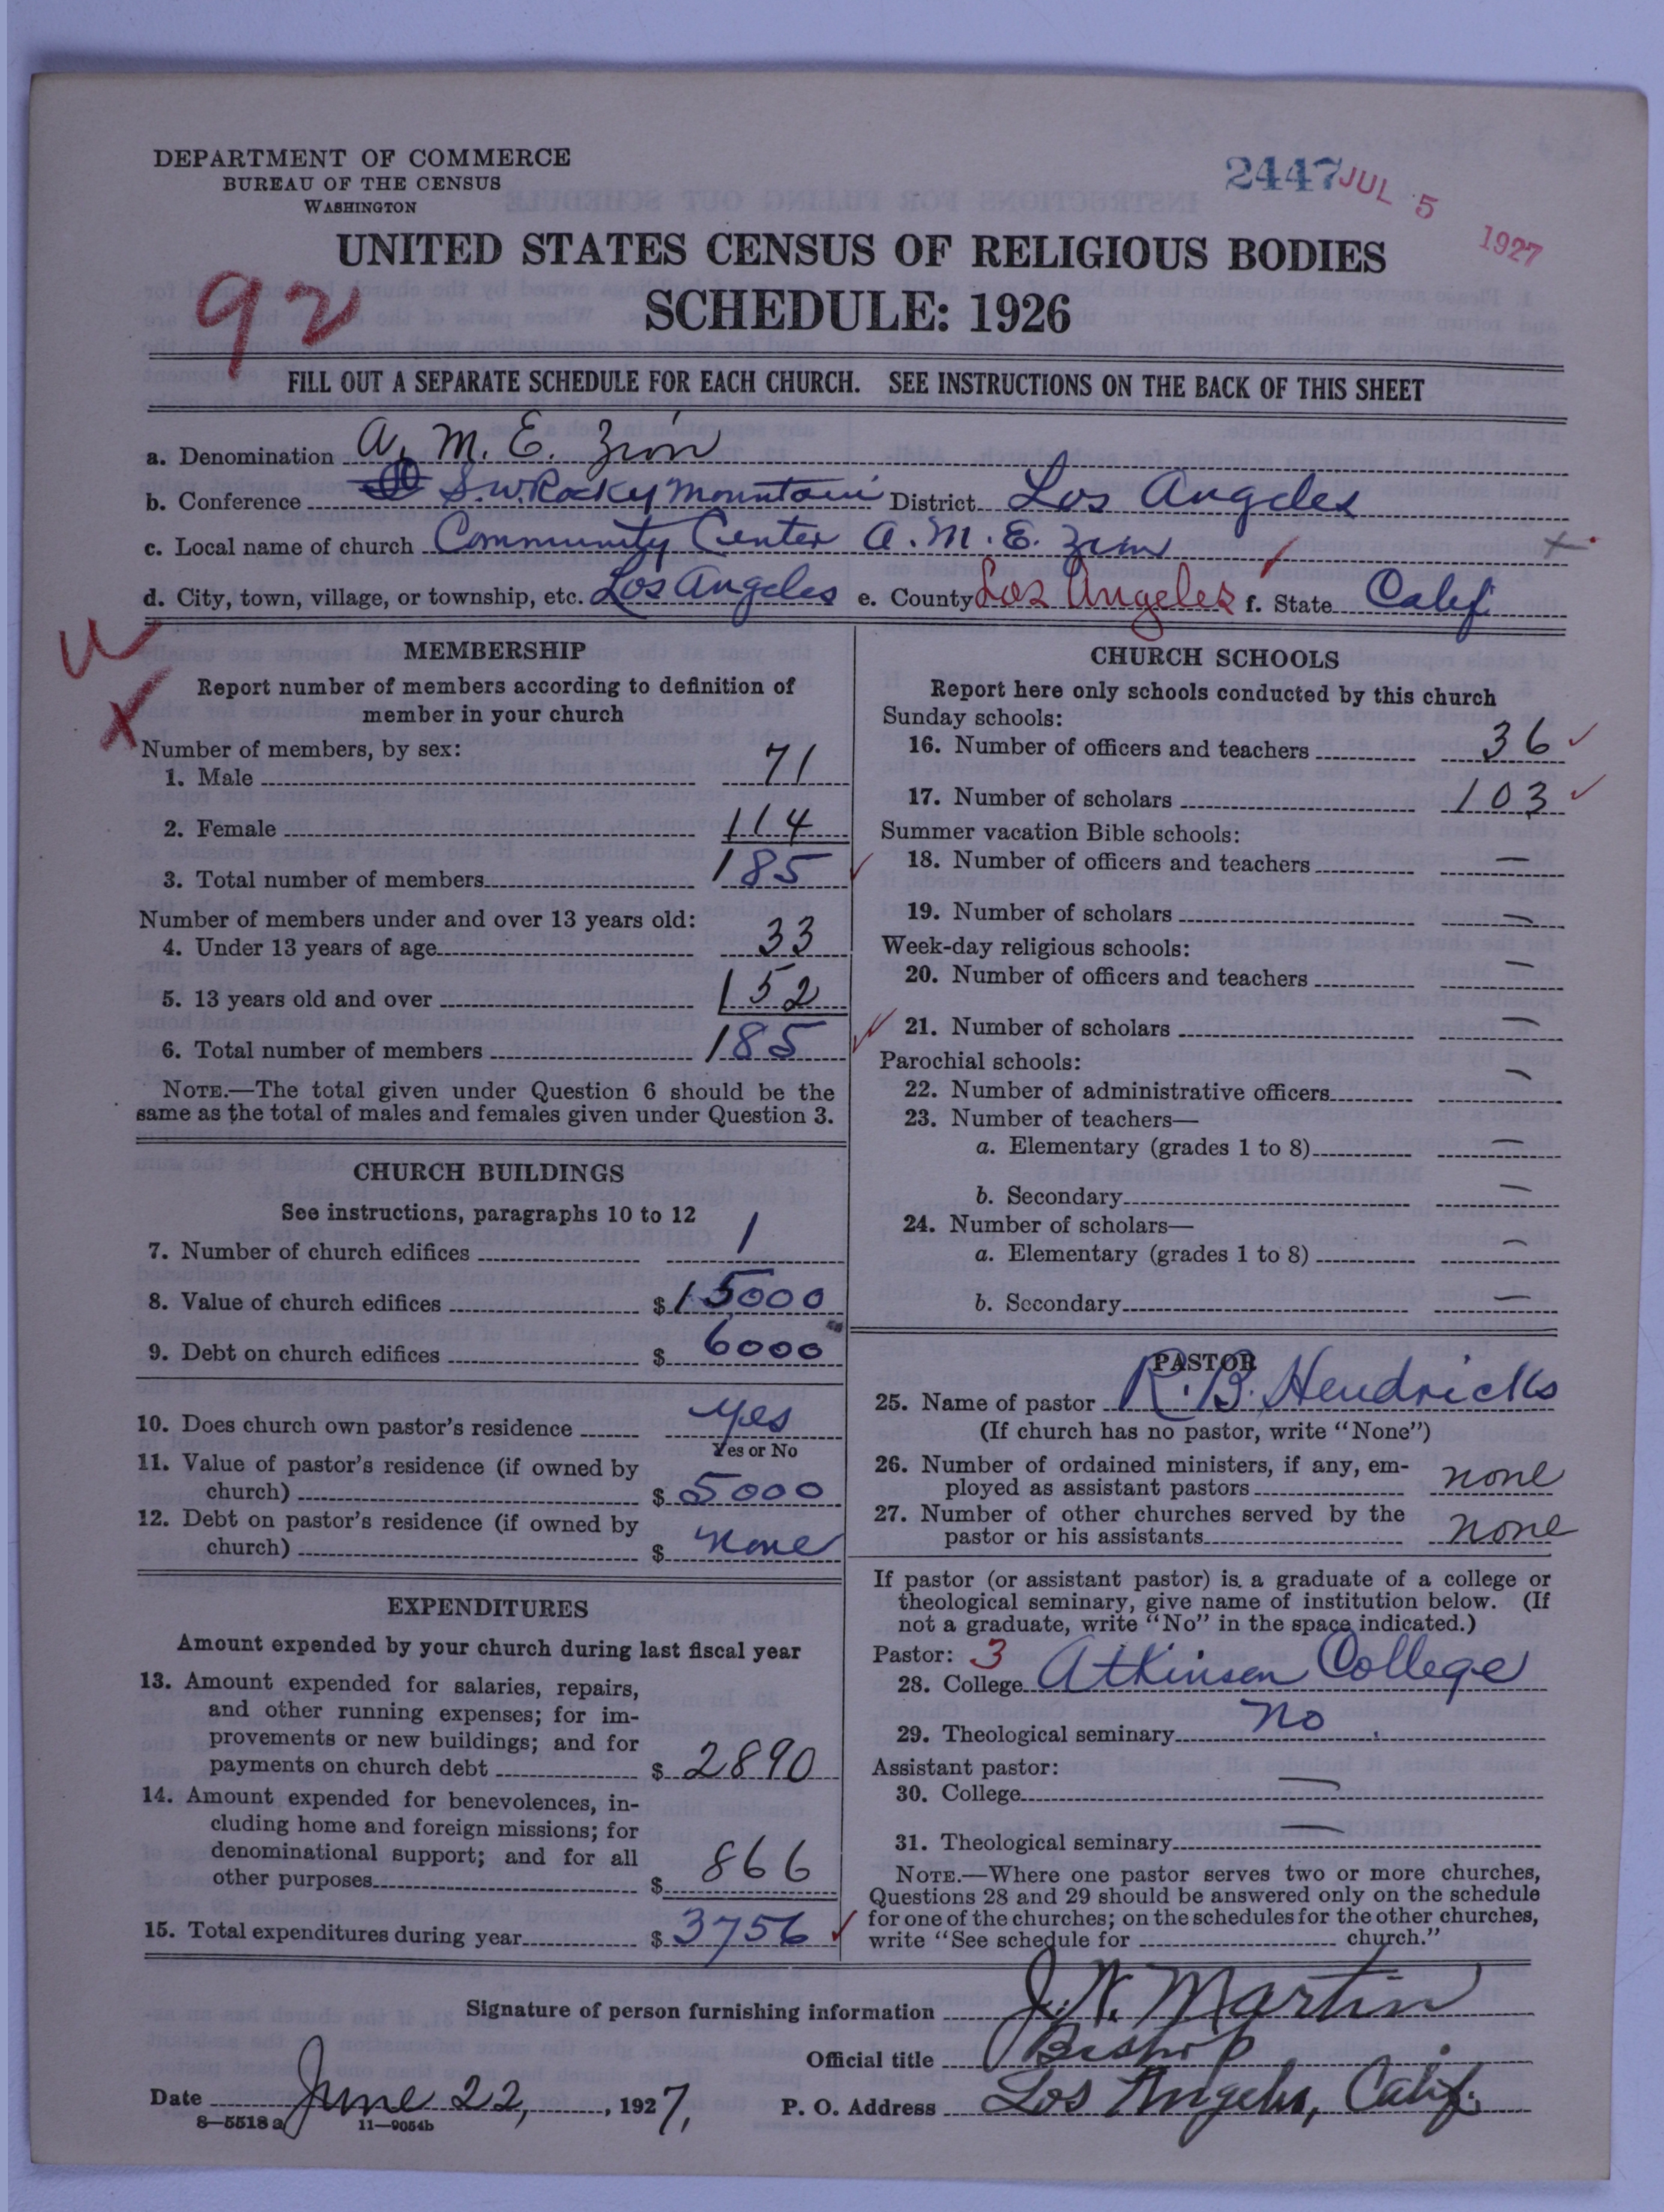 DEPARTMENT OF COMMERCE
BUREAU OF THE CENSUS
WASHINGTON
2447 JUL 5 1927
UNITED STATES CENSUS OF RELIGIOUS BODIES
92
SCHEDULE: 1926
FILL OUT A SEPARATE SCHEDULE FOR EACH CHURCH. SEE INSTRUCTIONS ON THE BACK OF THIS SHEET
a. Denomination A. M. E. Zion
b. Conference S. W. Rocky Mountain District Los Angeles
c. Local name of church Community Center A. M. E. Zion
d. City, town, village, or township, etc. Los Angeles e. County Los Angeles f. State Calif.
MEMBERSHIP
Report number of members according to definition of
member in your church
Number of members, by sex:
1. Male 71
2. Female 114
3. Total number of members 185
Number of members under and over 13 years old:
4. Under 13 years of age 33
5. 13 years old and over 152
6. Total number of members 185
NOTE.—The total given under Question 6 should be the
same as the total of males and females given under Question 3.
CHURCH BUILDINGS
See instructions, paragraphs 10 to 12
7. Number of church edifices 1
8. Value of church edifices $ 15000
9. Debt on church edifices $ 6000
10. Does church own pastor's residence yes
Yes or No
11. Value of pastor's residence (if owned by
church) $ 5000
12. Debt on pastor's residence (if owned by
church) $ none
EXPENDITURES
Amount expended by your church during last fiscal year
13. Amount expended for salaries, repairs,
and other running expenses; for im-
provements or new buildings; and for
payments on church debt $ 2890
14. Amount expended for benevolences, in-
cluding home and foreign missions; for
denominational support; and for all
other purposes $ 866
15. Total expenditures during year $ 3756
CHURCH SCHOOLS
Report here only schools conducted by this church
Sunday schools:
16. Number of officers and teachers 36
17. Number of scholars 103
Summer vacation Bible schools:
18. Number of officers and teachers —
19. Number of scholars —
Week-day religious schools:
20. Number of officers and teachers —
21. Number of scholars —
Parochial schools:
22. Number of administrative officers —
23. Number of teachers—
a. Elementary (grades 1 to 8) —
b. Secondary —
24. Number of scholars—
a. Elementary (grades 1 to 8) —
b. Secondary —
PASTOR
25. Name of pastor R. B. Hendricks
(If church has no pastor, write "None")
26. Number of ordained ministers, if any, em-
ployed as assistant pastors none
27. Number of other churches served by the
pastor or his assistants none
If pastor (or assistant pastor) is a graduate of a college or
theological seminary, give name of institution below. (If
not a graduate, write "No" in the space indicated.)
Pastor: 3
28. College Atkinson College
29. Theological seminary No
Assistant pastor:
30. College —
31. Theological seminary —
NOTE.—Where one pastor serves two or more churches,
Questions 28 and 29 should be answered only on the schedule
for one of the churches; on the schedules for the other churches,
write "See schedule for church."
Signature of person furnishing information J. W. Martin
Official title Bishop
Date June 22, 1927, P. O. Address Los Angeles, Calif.
8—5518 a 11—9054b